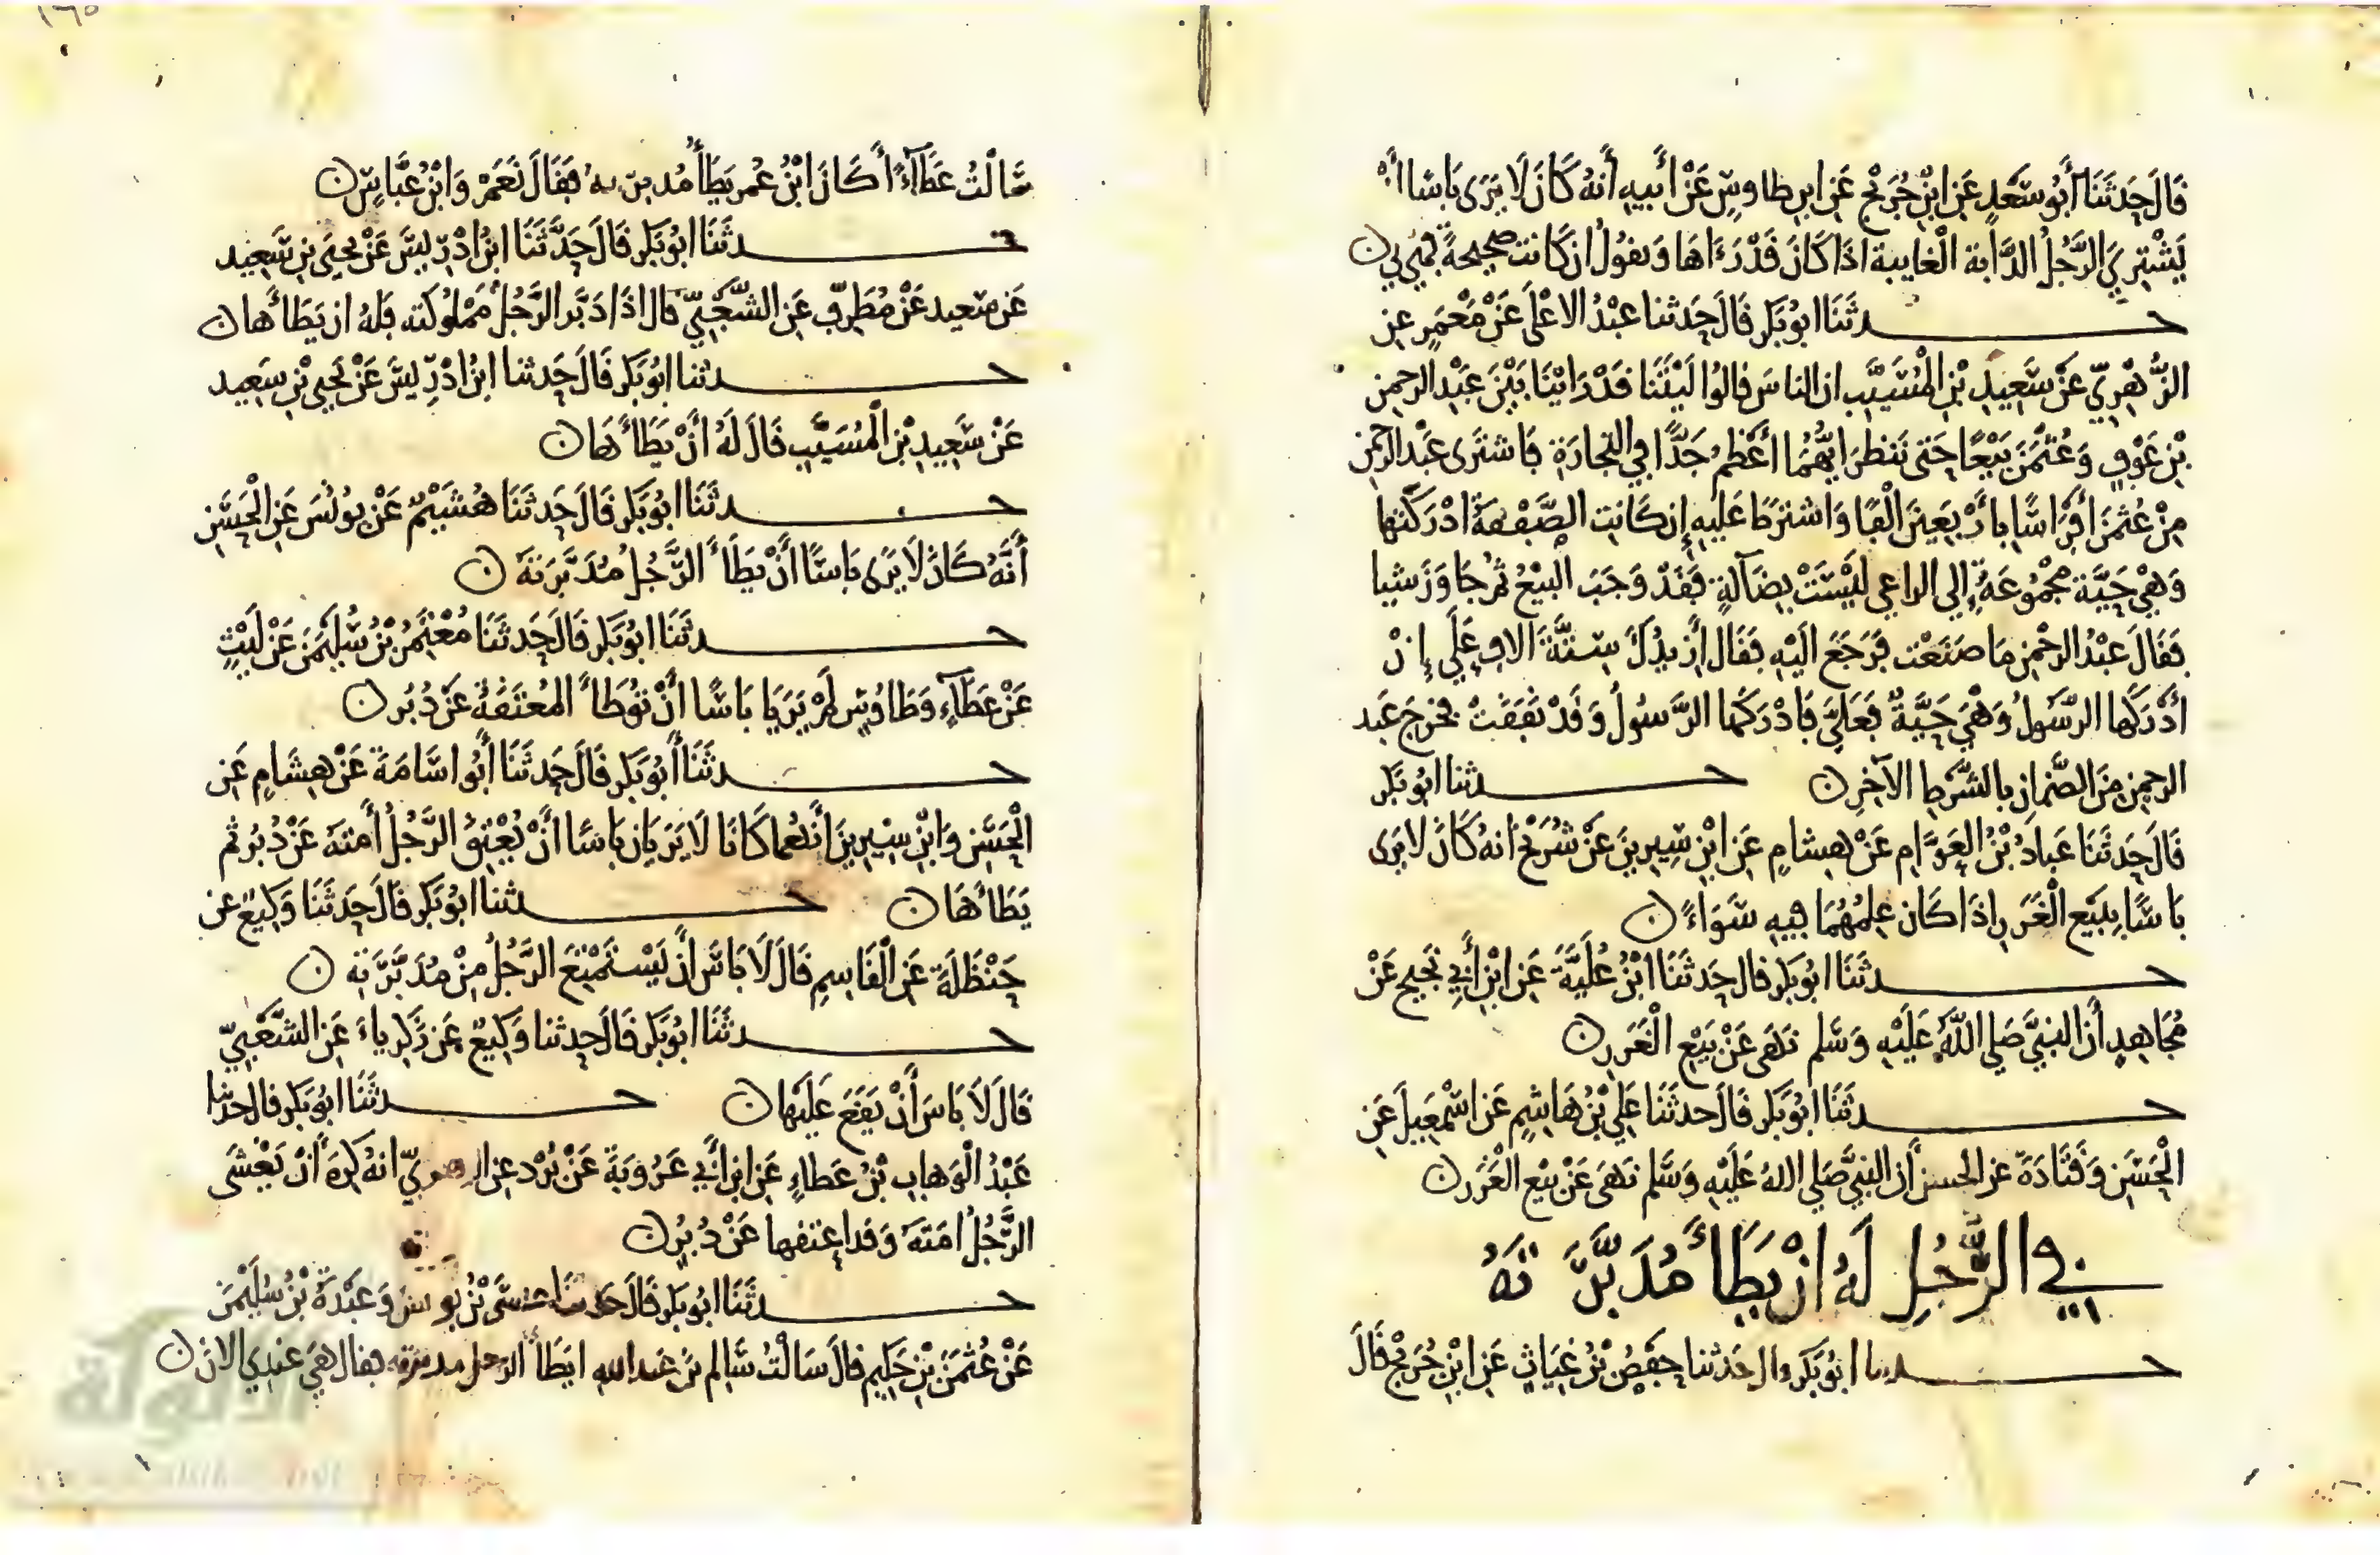 قَالَ حَدَثَنَا أَبُو سَعْدٍ عَنِ ابْنِ جُرَيْجٍ عَنِ ابن طاوسٍ عَنْ أَبيهِ أَنهُ كَانَ لَا يَرَى بَاسًا أن
يَشْتَرِيَ الرَّجُلُ الدَّابة الْغايبة اذَا كَانَ قَدْ رَءَاهَا وَيقولُ ان كَانت صَحيحةً فَهْيَ لي
حدثَنَا ابو بَكر قَالَ حَدثنا عَبْدُ الاعْلَى عَنْ مَعْمَرٍ عن
الزُّهْرِيّ عَنْ سَعِيدِ بْنِ الْمُسَيَّبِ ان الناسَ قالوا لَيْتَنَا قَدْ رَايْنَا بَيْنَ عَبْدِ الرحمن
بْنِ عَوْفٍ وَعُثْمَنَ بَيْعًا حَتى نَنظرَ ايُّهُمَا أَعْظَمُ جَدًّا في التجارَةِ فَاشترَى عَبْدُ الرحمن
مِنْ عُثمنَ أفْرَاسًا بأرْبَعِينَ الْفًا وَاشترطَا عَليهِ إن كَانَتِ الصَّفْقةُ ادْرَكَتْها
وَهْيَ حَيَّة مَجْمُوعَةً إلى الراعي لَيْسَتْ بِضَآلةٍ فَقَدْ وَجَبَ البيْعُ ثم جَاوَزَ شيا
فَقَالَ عَبْدُ الرحْمنِ مَا صَنَعْت فَرَجَعَ الَيْهِ فَقَالَ أزيدُكَ سِتَّةَ الافٍ عَلَى إنْ
ادْرَكَها الرسُولُ وَهْيَ حَيَّةٌ فَعَلَيَّ فَادْرَكَها الرسُولُ وَقَدْ نَفَقَتْ فخرجَ عَبد
الرحمن مِنَ الضَّمَانِ بالشَّرْطِ الآخِر حدثنا ابو بَكر
قَالَ حَدثَنَا عَبادُ بْنُ العَوَّامِ عَنْ هِشامٍ عَنِ ابْنِ سِيرينَ عَنْ شُرَيْحٍ أنهُ كَانَ لا يَرَى
بَاسًا بِبَيْعِ الْغَرَرِ اذَا كَان عِلمُهُمَا فيهِ سَوَاءً
حدثَنَا ابو بَكر قال حَدثَنَا ابْنُ عُلَيَّةَ عَنِ ابْنِ أَبِي نَجيحٍ عَنْ
مُجَاهِدٍ أَن النبيَّ صَلى اللهُ عَلَيْهِ وَسَلم نَهَى عَنْ بَيْعِ الْغَرَر
حدثَنَا ابو بَكر قَالَ حدثَنَا عَلي بْنُ هَاشِمٍ عَن اسْمَعيلَ عَنِ
الْحَسَنِ وَقَتَادَةَ عن الحسن أن النبيَّ صَلى اللهُ عَلَيْهِ وَسَلم نَهَى عَنْ بَيْعِ الْغَرَر
في الرَّجُلِ لَهُ ان يَطَأَ مُدَبَّرَتَهُ
حدثنا ابُو بَكر قال حَدثنا حَفصُ بْنُ غِيَاثٍ عَنِ ابْنِ جُرَيْجٍ قَالَ
سَالْتُ عَطَآءً أَكَانَ ابْنُ عُمر يَطَأُ مُدبرتيه فَقَالَ نَعَمْ وَابْنُ عَبَّاسٍ
حدثَنَا ابو بَكر قَالَ حَدَّثَنَا ابْنُ ادْرِيسَ عَنْ يحيَى بن سَعِيد
عَن سَعيد عَنْ مُطَرِّفٍ عَنِ الشَّعْبِيِّ قال اذَا دَبَّر الرَّجُلُ مَمْلُوكَته فَلهُ ان يَطَأَها
حدثنا ابو بَكر قَالَ حَدثنا ابْنُ ادْرِيسَ عَنْ يَحيى بْنِ سَعِيد
عَنْ سَعِيدِ بْنِ الْمُسَيَّبِ قَالَ لَهُ أَنْ يَطَأَهَا
حدثَنَا ابو بَكر قَالَ حَدثَنَا هُشَيْمٌ عَنْ يُونُسَ عَنِ الْحَسَنِ
أَنَّهُ كَانَ لَا يَرَى بَاسًا أَنْ يَطَأَ الرَّجُلُ مُدَبَّرَتَهُ
حدثَنَا ابو بَكر قَالَ حَدثَنَا مُعْتَمِرُ بْنُ سُلَيْمَنَ عَنْ لَيْثٍ
عَنْ عَطَآءٍ وَطَاوُسٍ لَمْ يَرَيَا بَاسًا أَنْ تُوطَأَ الْمُعْتَقَةُ عَنْ دُبُر
حدثَنَا أَبو بَكر قَالَ حَدثَنَا أَبُو اسَامَةَ عَنْ هِشَامٍ عَنِ
الْحَسَنِ وَابْنِ سِيرِينَ أَنهُما كَانَا لَا يَرَيَانِ بَاسًا أَنْ يُعْتِقَ الرَّجُلُ أَمتَهُ عَنْ دُبُر ثم
يَطَأَهَا حدثنا ابو بَكر قَالَ حَدثَنَا وَكِيعٌ عن
حَنْظَلَةَ عَنِ الْقَاسِمِ قَالَ لَا بَاسَ أَنْ يَسْتَمْتِعَ الرَّجُلُ مِنْ مُدَبَّرَتِه
حدثَنَا ابو بَكر قَالَ حَدثنا وَكِيعٌ عَن زَكرياءَ عَنِ الشَّعْبِيّ
قَالَ لَا بَاسَ أَنْ يَقَعَ عَلَيْها حدثَنَا ابو بَكر قال حدثنا
عَبْدُ الْوَهابِ بْنُ عَطاءٍ عَنِ ابنِ أَبي عَرُوبَةَ عَنْ بُرْد عن الزهريّ انهُ كَرِهَ أَنْ يَغْشَى
الرَّجُلُ امَتَهُ وَقد اعتقها عَنْ دُبُرٍ
حدثَنَا ابو بَكر قَالَ حَدثنا عيسَى بْنُ يونس وَعَبْدَةُ بْنُ سُلَيْمَن
عَنْ عُثْمَنَ بْنِ حَكِيم قالَ سَالْتُ سَالم بْنَ عَبد الله ايَطَأُ الرجل مدبرته فقال هِيَ عندي الان